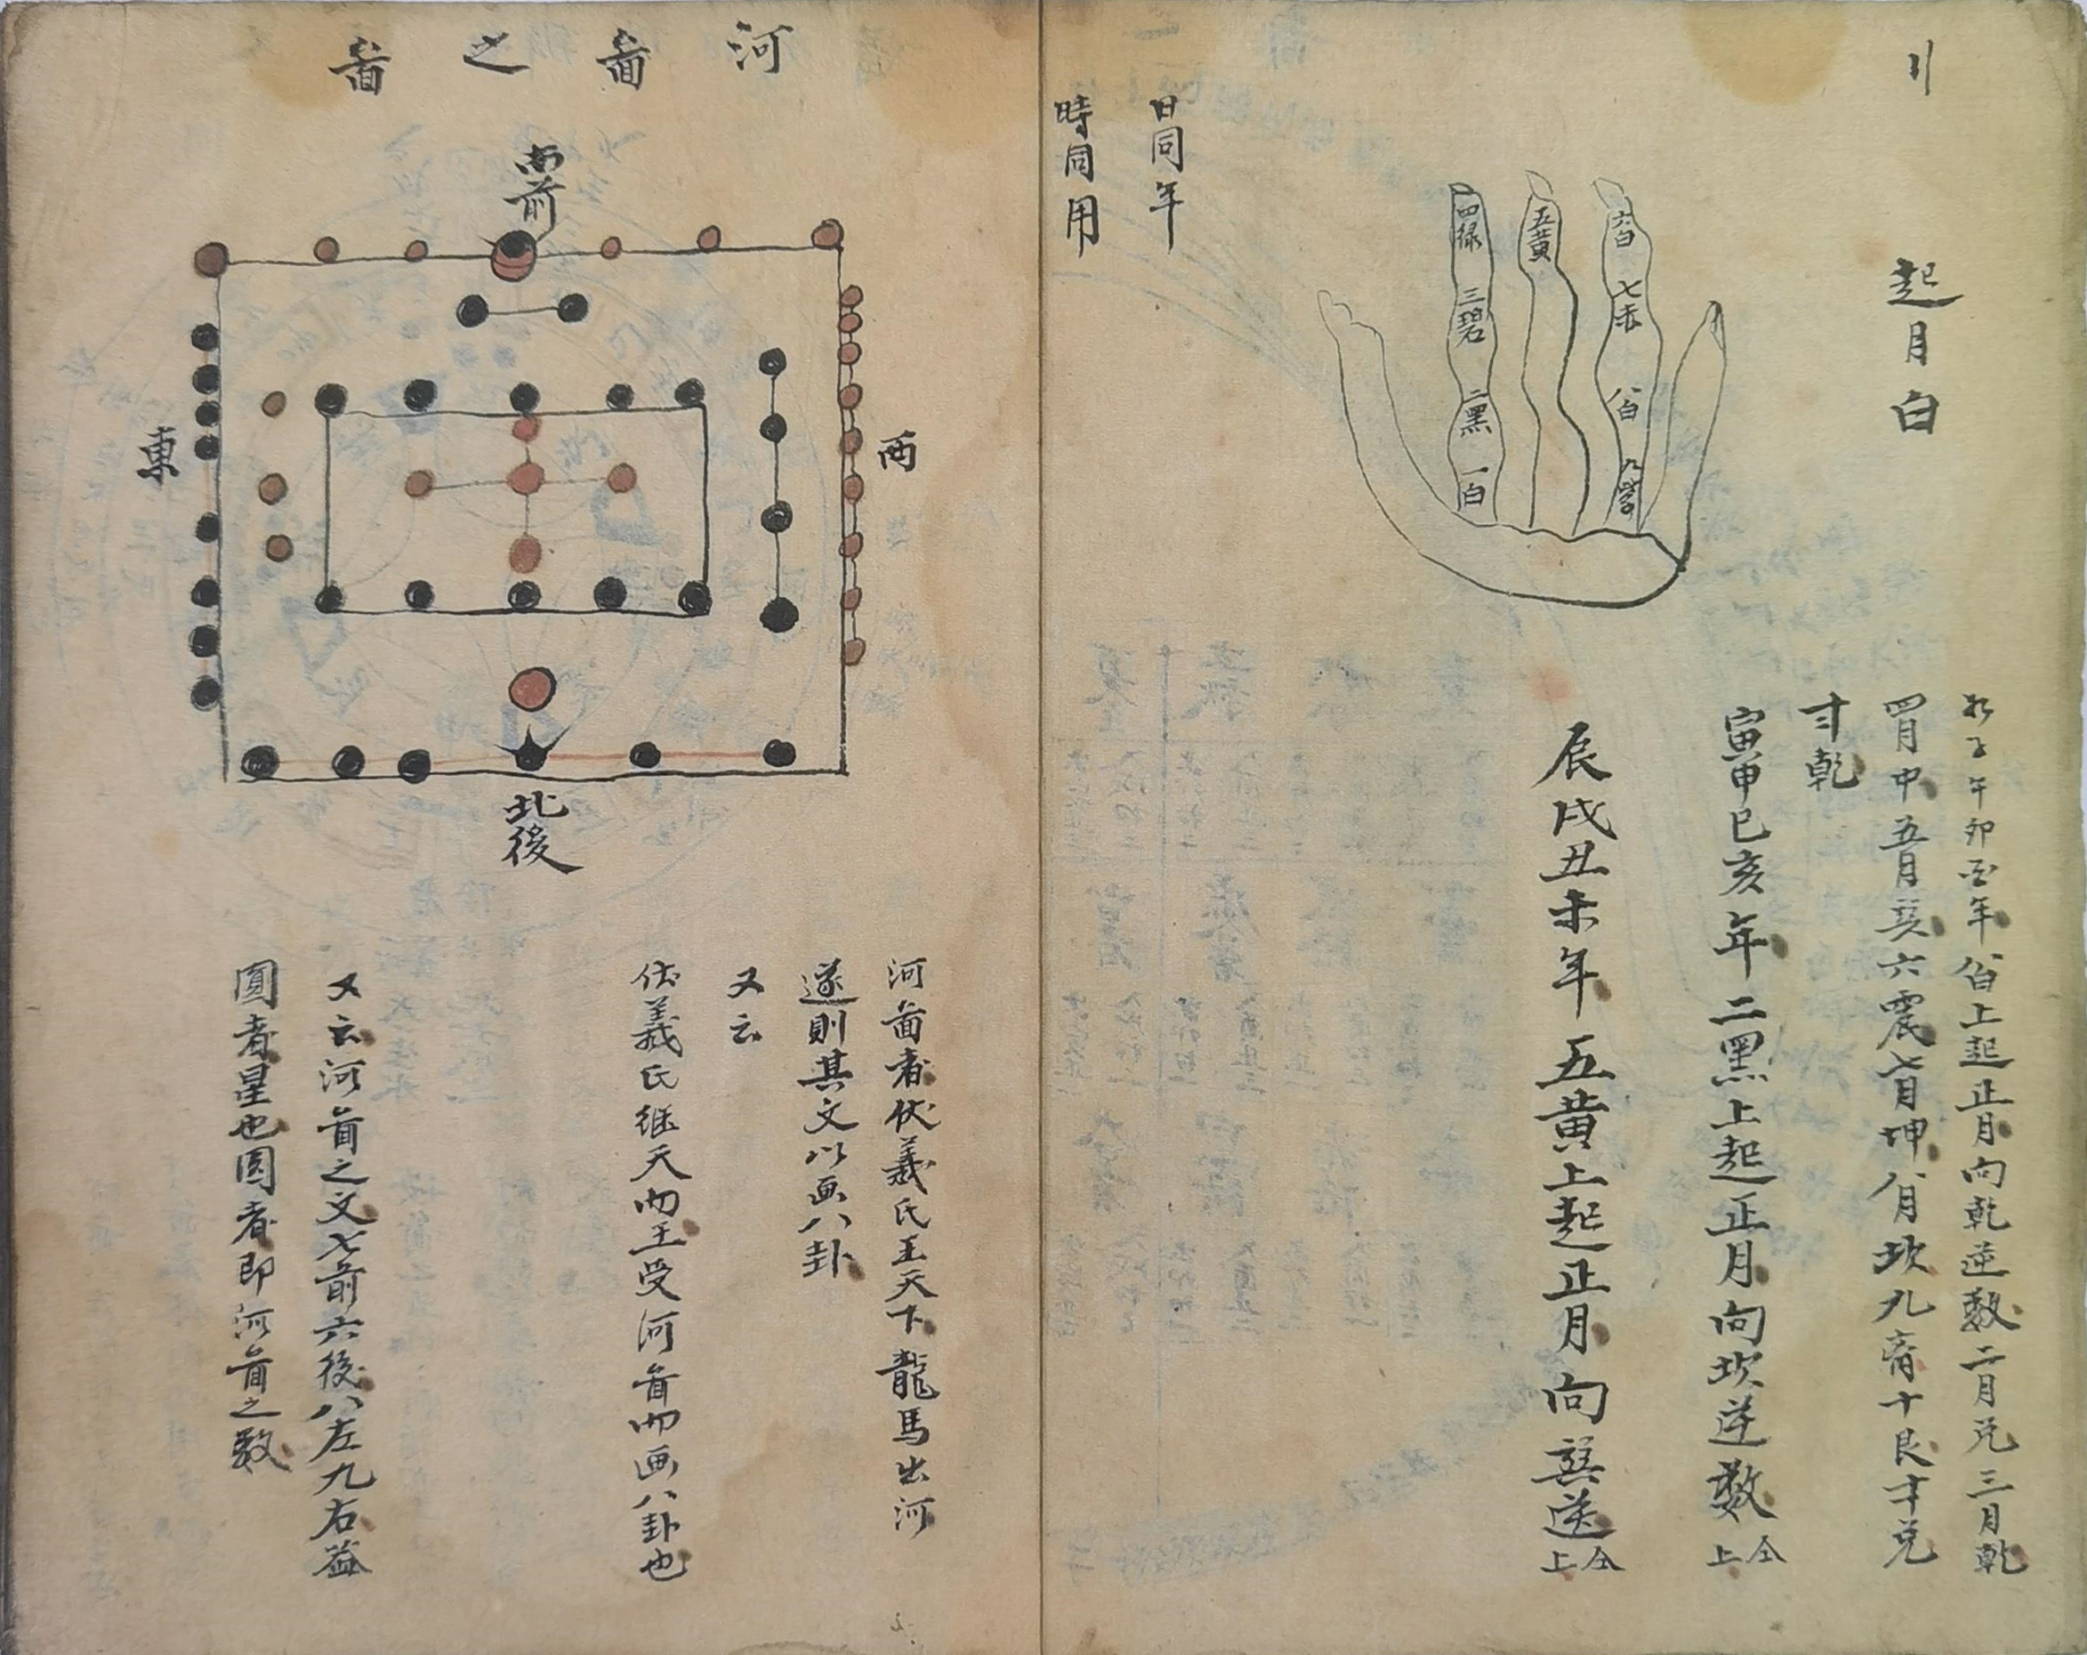 起月白
四綠
三碧
二黑
一白
五黃
六白
七赤
八白
九紫
子午卯酉年八白上起正月向乾逆數二月兌三月乾
四月中五月巽六震七月坤八月坎九离十艮十兌
寅申巳亥年二黑上起正月向坎逆數仝上
辰戌丑未年五黃上起正月向巽逆仝上
日同年
時同用
河啚之啚
南前
東
西
北後
河啚者伏羲氏王天下龍馬出河
遂則其文以画八卦
又云
伏羲氏继天而王受河啚而画八卦也
又云河啚之文七前六後八左九右益
圓者星也圓者即河啚之數